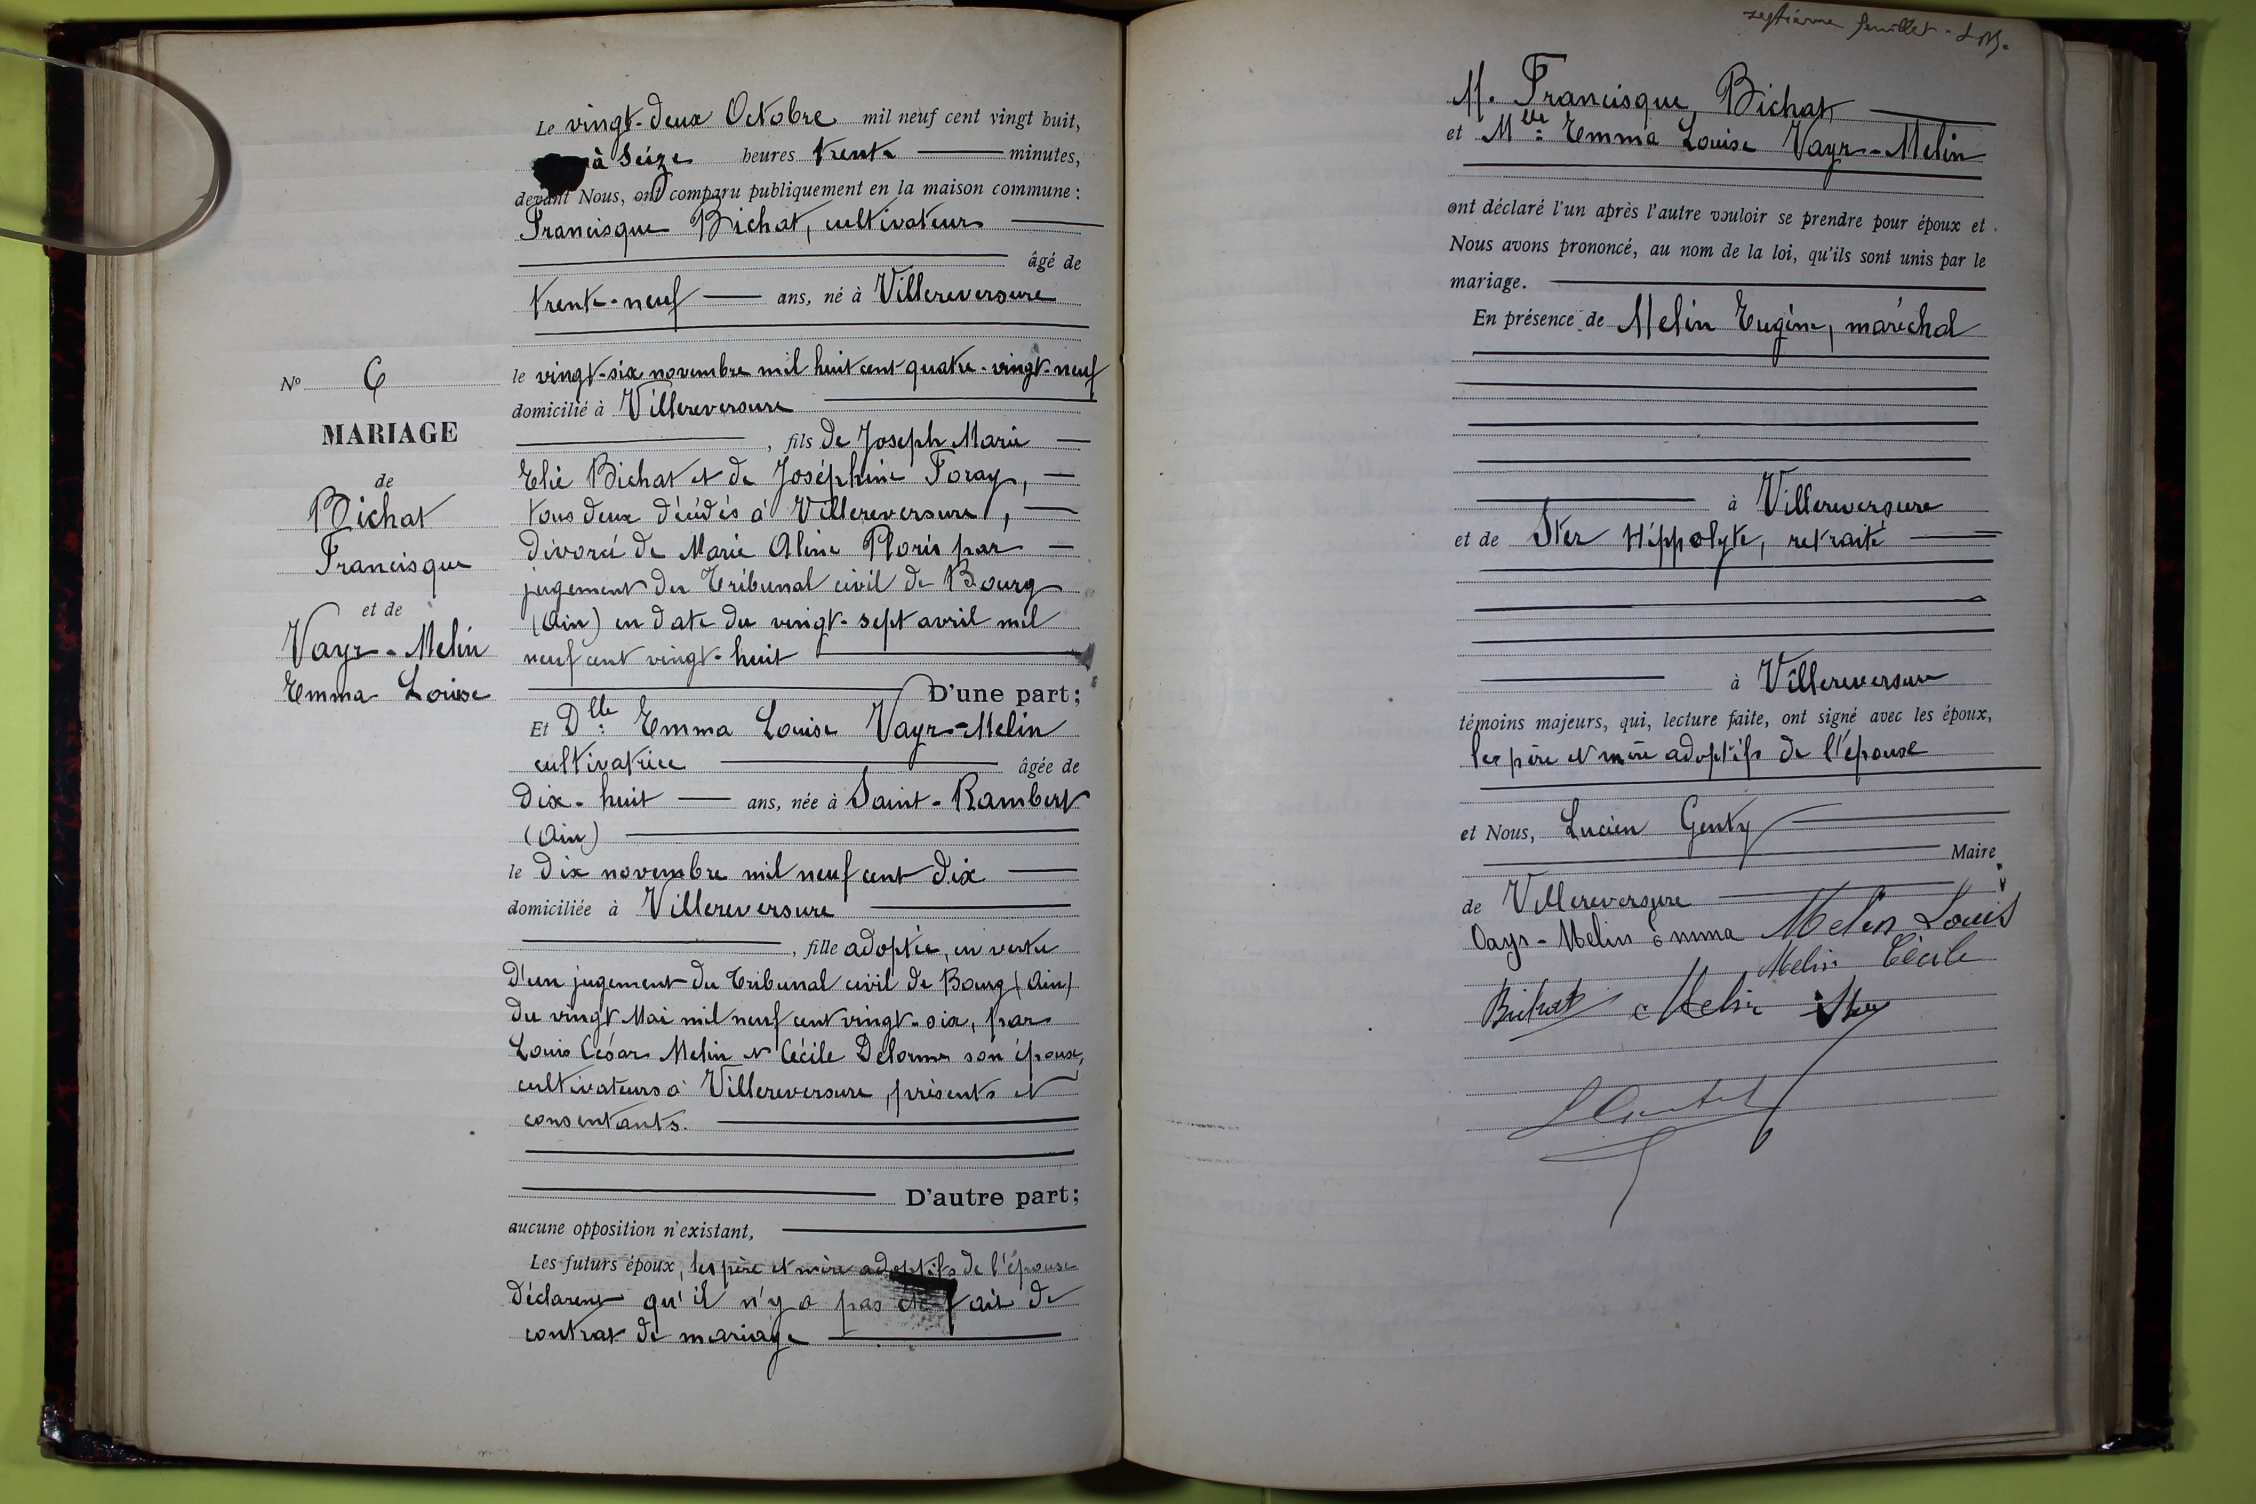 Le vingt-deux Octobre mil neuf cent vingt huit,
à Seize heures trente minutes,
devant Nous, ont comparu publiquement en la maison commune :
Francisque Bichat, cultivateur
âgé de
trente-neuf ans, né à Villereversure
le vingt-six novembre mil huit cent quatre-vingt-neuf
domicilié à Villereversure
, fils de Joseph Marie
Elie Bichat et de Joséphine Foray,
tous deux décédés à Villereversure,
divorcé de Marie Aline Ploris par
jugement du Tribunal civil de Bourg
(Ain) en date du vingt-sept avril mil
neuf cent vingt-huit
D'une part;
Et Dlle Emma Louise Vayr-Melin
cultivatrice âgée de
dix-huit ans, née à Saint-Rambert
(Ain)
le dix novembre mil neuf cent dix
domiciliée à Villereversure
, fille adoptée, en vertu
d'un jugement du Tribunal civil de Bourg (Ain)
du vingt Mai mil neuf cent vingt-six, par
Louis César Melin et Cécile Delorme son épouse,
cultivateurs à Villereversure, présents et
consentants.
D'autre part;
aucune opposition n'existant,
Les futurs époux, les père et mère adoptifs de l'épouse
déclarent qu'il n'y a pas été fait de
contrat de mariage
No 6
MARIAGE
de
Bichat
Francisque
et de
Vayr-Melin
Emma Louise
septième feuillet.
M. Francisque Bichat
et Mlle Emma Louise Vayr-Melin
ont déclaré l'un après l'autre vouloir se prendre pour époux et
Nous avons prononcé, au nom de la loi, qu'ils sont unis par le
mariage.
En présence de Melin Eugène, maréchal
à Villereversure
et de Ster Hippolyte, retraité
à Villereversure
témoins majeurs, qui, lecture faite, ont signé avec les époux,
les père et mère adoptifs de l'épouse
et Nous, Lucien Genty
Maire
de Villereversure
Vayr-Melin Emma Melin Louis
Melin Cécile
Bichat Melin Ster